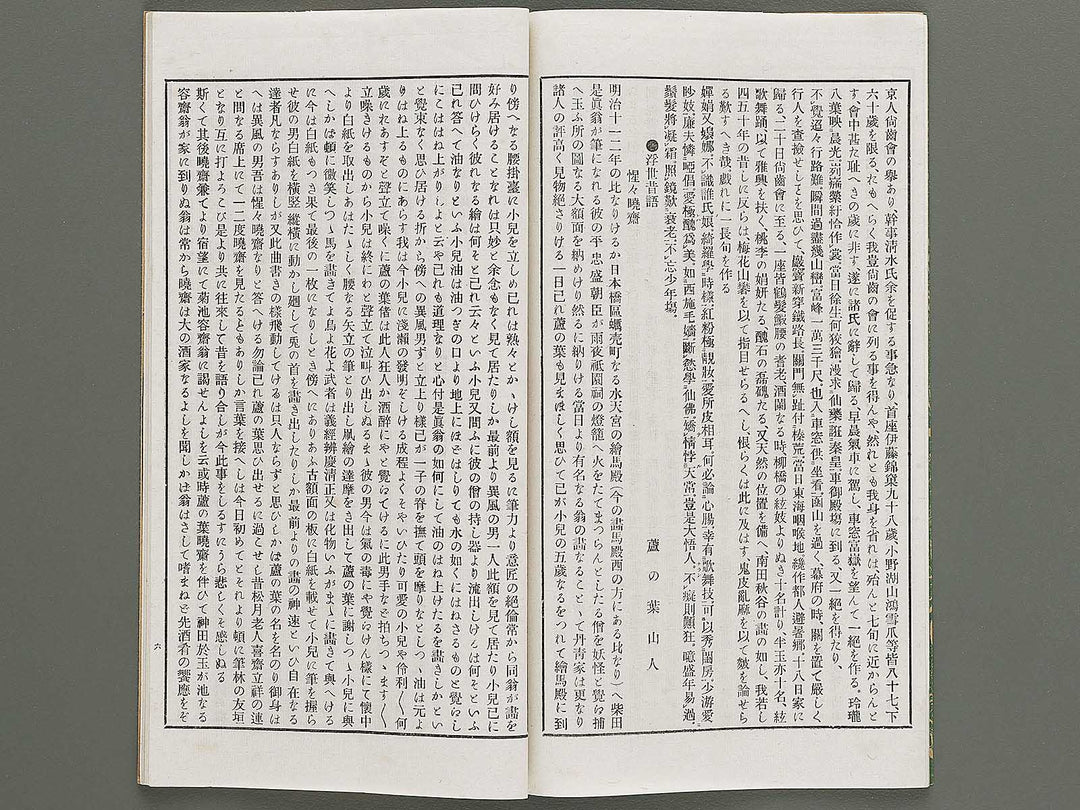 京人尙齒會の擧あり、幹事淸水氏余を促する事急なり、首座伊藤錦窠九十八歲、小野湖山鴻雪爪等皆八十七、下
六十歲を限る、おもへらく我豈尙齒の會に列る事を得んや、然れとも我身を省れは、殆んと七旬に近からんと
す、會中甚た耻へきの歲に非す、遂に諸氏に辭して歸る、早晨氣車に駕し、車窓富嶽を望んて一絕を作る、玲瓏
八葉映晨光、列痛縈紆恰作裳、當日徐生何狡獪、漫求仙藥誑秦皇、車御殿塲に到る、又一絕を得たり、
不覺迢々行路難、瞬間過盡幾山巒、富峰一萬三千尺、也入車窓供坐看、函山を過く、幕府の時、關を置て嚴しく
行人を査撿せしことを思ひて、巖竇新穿鐵路長、關門無趾付榛荒、當日東海咽喉地、繞作都人避暑鄕、十八日家に
歸る、二十日尙齒會に至る、一座皆鶴髮皺腰の耆老、酒闌なる時、柳橋の絃妓よりぬき十名計り、半玉亦十名、絃
歌舞踊、以て雅興を扶く、桃李の娟姸たる、醜石の磊磈たる、又天然の位置を備へ、南田秋谷の畵の如し、我若し
四五十年の昔しに反らは、梅花山礬を以て指目せらるへし、恨らくは此に及はす、鬼皮亂麻を以て皴を論せら
る歎すへき哉、戲れに一長句を作る
嬋娟又嫋娜、不識誰氏娘、綺羅學時樣、紅粉極靚妝、愛所皮相耳、何必論心腸、幸有歌舞技、可以秀閨房、少游愛
眇妓、廉夫憐啞倡、愛極醜爲美、如西施毛嬙、斷慾學仙佛、矯情悖天常、豈是大悟人、不癡則顚狂、噫盛年易過、
鬚髮將凝霜、照鏡歎衰老、不忘少年塲、
浮世昔語
惺々曉齋　蘆の葉山人
明治十一二年の比なりけるか日本橋區蠣売町なる水天宮の繪馬殿(今の畵馬殿西の方にある比なり)へ柴田
是眞翁が筆になれる彼の平忠盛朝臣が雨夜祇園祠の燈籠へ火をたてまつらんとしたる僧を妖怪と覺ゐ捕
へ玉ふ所の圖なる大額面を納めけり然るに納りける當日より有名なる翁の畵なることゝて丹靑家は更なり
諸人の評高く見物絕さりける一日己れ蘆の葉も見まほしく思ひて己が小兒の五歲なるをつれて繪馬殿に到
り傍へなる腰掛臺に小兒を立しめ己れは熟々とかゝけし額を見るに筆力より意匠の絕倫常から同翁が畵を
好み居けることなれは只妙と余念もなく見て居たりしか最前より異風の男一人此額を見て居たり小兒己に
間ひけらく彼れなる繪は何そと己れ云々といふ小兒又間ふに彼の僧の持し器より流出しけるは何そといふ
己れ答へて油なりといふ小兒油は油つぎの口より地上にほとはしりても水の如くにはねさるものと覺らし
にこははね上がりしよと云や己れも道理なりと心付是眞翁の如何にして油のはね上けたるを畵きしかとい
と覺束なく思ひ居ける折から傍への異風男ずと立上り樣己が一子の脊を撫て頭を摩りなとしつゝ油は元よ
りはね上るものにあらす我は今小兒に淺瀬の發明そしける成程よくそやいひたり可愛の小兒や伶利〱何
歲にれあすぞと聲立て噪くに蘆の葉偖は此人狂人か酒醉にやと覺らてけるに此男手なと拍ちつゝます〱
立噪きけるものから小兒は終にわと聲立て泣叫び出しぬるまゝ彼の男今は氣の毒にや覺らけん樣にて懷中
より白紙を取出しあはたゝしく腰なる矢立の筆とり出し凧繪の達摩をゑ出して蘆の葉に謝しつゝ小兒に與
へしかは頓に微笑しつゝ馬を畵きてよ鳥よ花よ武者は義經辨慶淸正又は化物いふがまゝに畵きて與へける
に今は白紙もつき果て最後の一枚になりしとき傍へにありあふ古額面の板に白紙を載せて小兒に筆を握ら
せ彼の男白紙を橫竪縱橫に動かし廻して兎の首を畵き出したりしか最前よりの畵の神速といひ自在なる
達者凡ならすありしが又此曲書きの樣飛動してけるは只人ならずと思ひしかは蘆の葉の名を名のり御身は
へは異風の男吾は惺々曉齋なりと答へける勿論己れ蘆の葉思ひ出せるに過こせし昔松月老人喜齋立祥の連
と間なる席上にて一二度曉齋を見たるともありしか言葉を接へしは今日初めてとそれより頓に筆林の友垣
となり互に打よろこび是より共に往來して昔を語り合しが今此事をしるすにうら悲しくそ感しぬる
斯くて其後曉齋兼てより宿望にて菊池容齋翁に謁せんよしを云或時蘆の葉曉齋を伴ひて神田於玉が池なる
容齋翁が家に到りぬ翁は常から曉齋は大の酒家なるよしを聞しかは翁はさして嗜まねと先酒肴の饗應をぞ
六